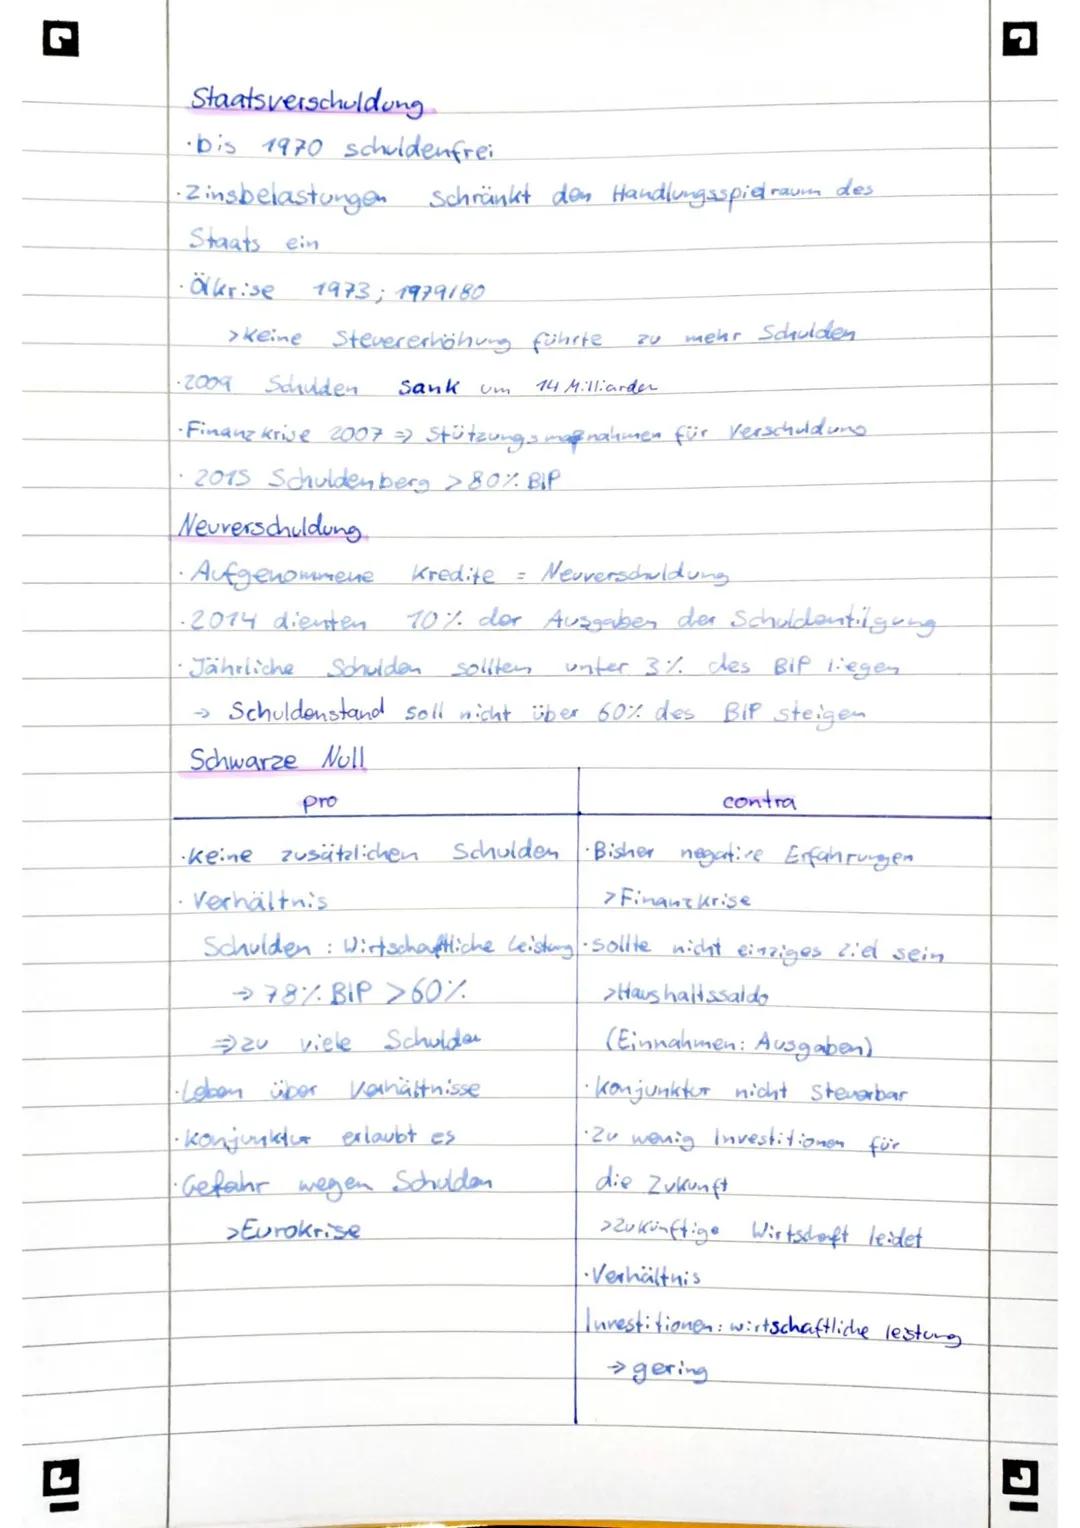 Staatsverschuldung
·bis 1970 schuldenfrei
·Zinsbelastungen schränkt den Handlungsspielraum des
Staats ein
·Ölkrise 1973; 1979/80
>keine Steuererhöhung führte zu mehr Schulden
·2009 Schulden sank um 14 Milliarden
·Finanzkrise 2007 ⇒ Stützungsmaßnahmen für Verschuldung
·2015 Schuldenberg >80% BIP
Neuverschuldung
·Aufgenommene Kredite = Neuverschuldung
·2014 dienten 10% der Ausgaben der Schuldentilgung
·Jährliche Schulden sollten unter 3% des BIP liegen
→ Schuldenstand soll nicht über 60% des BIP steigen
Schwarze Null
pro
contra
·keine zusätzlichen Schulden
·Verhältnis
Schulden : Wirtschaftliche Leistung
→ 78% BIP >60%
⇒ zu viele Schulden
·Leben über Verhältnisse
·Konjunktur erlaubt es
·Gefahr wegen Schulden
>Eurokrise
·Bisher negative Erfahrungen
>Finanzkrise
·sollte nicht einziges Ziel sein
>Haushaltssaldo
(Einnahmen: Ausgaben)
·Konjunktur nicht steuerbar
·Zu wenig Investitionen für
die Zukunft
>Zukünftige Wirtschaft leidet
·Verhältnis
Investitionen: wirtschaftliche leistung
→ gering